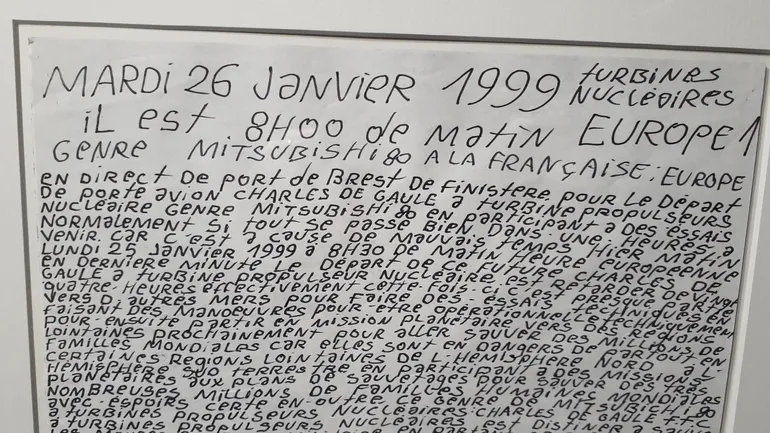 MARDI 26 JANVIER 1999 TURBINES
NUCLÉAIRES
iL est 8H00 de MATIN EUROPE 1
GENRE MITSUBISHI 80 A LA FRANÇAISE: EUROPE
EN DIRECT DE PORT de BREST DE FINISTERE POUR LE DÉPART
DE PORTE AVION CHARLES DE GAULE A TURBINE PROPULSEURS
NUCLÉAIRE GENRE MITSUBISHI 80 EN PARTICIPANT A DES ESSAIS
NORMALEMENT SI TOUT SE PASSE BIEN DANS UNE HEURES A
VENIR CAR C'EST A CAUSE DE MAUVAIS TEMPS HIER MATIN
LUNDI 25 JANVIER 1999 A 8H30 DE MATIN HEURE EUROPÉENNE
EN DERNIERE MINUTE LE DÉPART DE CE FUTURE CHARLES DE
GAULE A TURBINE PROPULSEUR NUCLÉAIRE EST RETARDER DE
QUATRE HEURES EFFECTIVEMENT CETTE FOIS-CI C'EST PARTIR
VERS D'AUTRES MERS POUR FAIRE DES ESSAIS PRESQUE
FAISANT DES MANOEUVRES POUR ETRE OPÉRATIONNELLE TECHNIQUEMENT
POUR ENSUITE PARTIR EN MISSION PLANÉTAIRE VERS DES RÉGIONS
LOINTAINES PROCHAINEMENT POUR ALLER SAUVER DES MILLIONS DE
FAMILLES MONDIALES CAR ELLES SONT EN DANGERS DE PARTOUT EN
CERTAINES REGIONS LOINTAINES DE L'HEMISPHERE NORD A L'
HEMISPHERE SUD TERRESTRE EN PARTICIPANT A DES MISSIONS
PLANÉTAIRES AUX PLANS DE SAUVETAGES POUR SAUVER DES TRÈS
NOMBREUSES MILLIONS DE FAMILLES HUMAINES MONDIALES
AVEC ESPOIRS CERTE EN OUTRE CE GENRE DE MITSUBICHI 80
A TURBINES PROPULSEURS NUCLÉAIRES: CHARLES DE GAULE
A TURBINES PROPULSEURS NUCLÉAIRES EST DISTINER A